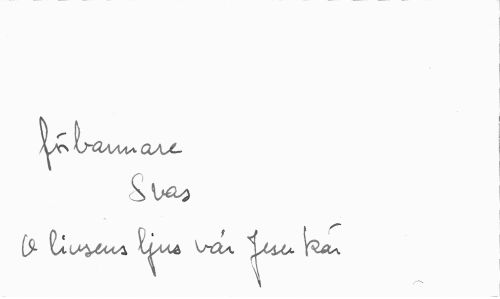 förbarmare
Svas
O livsens ljus vår Jesu kär